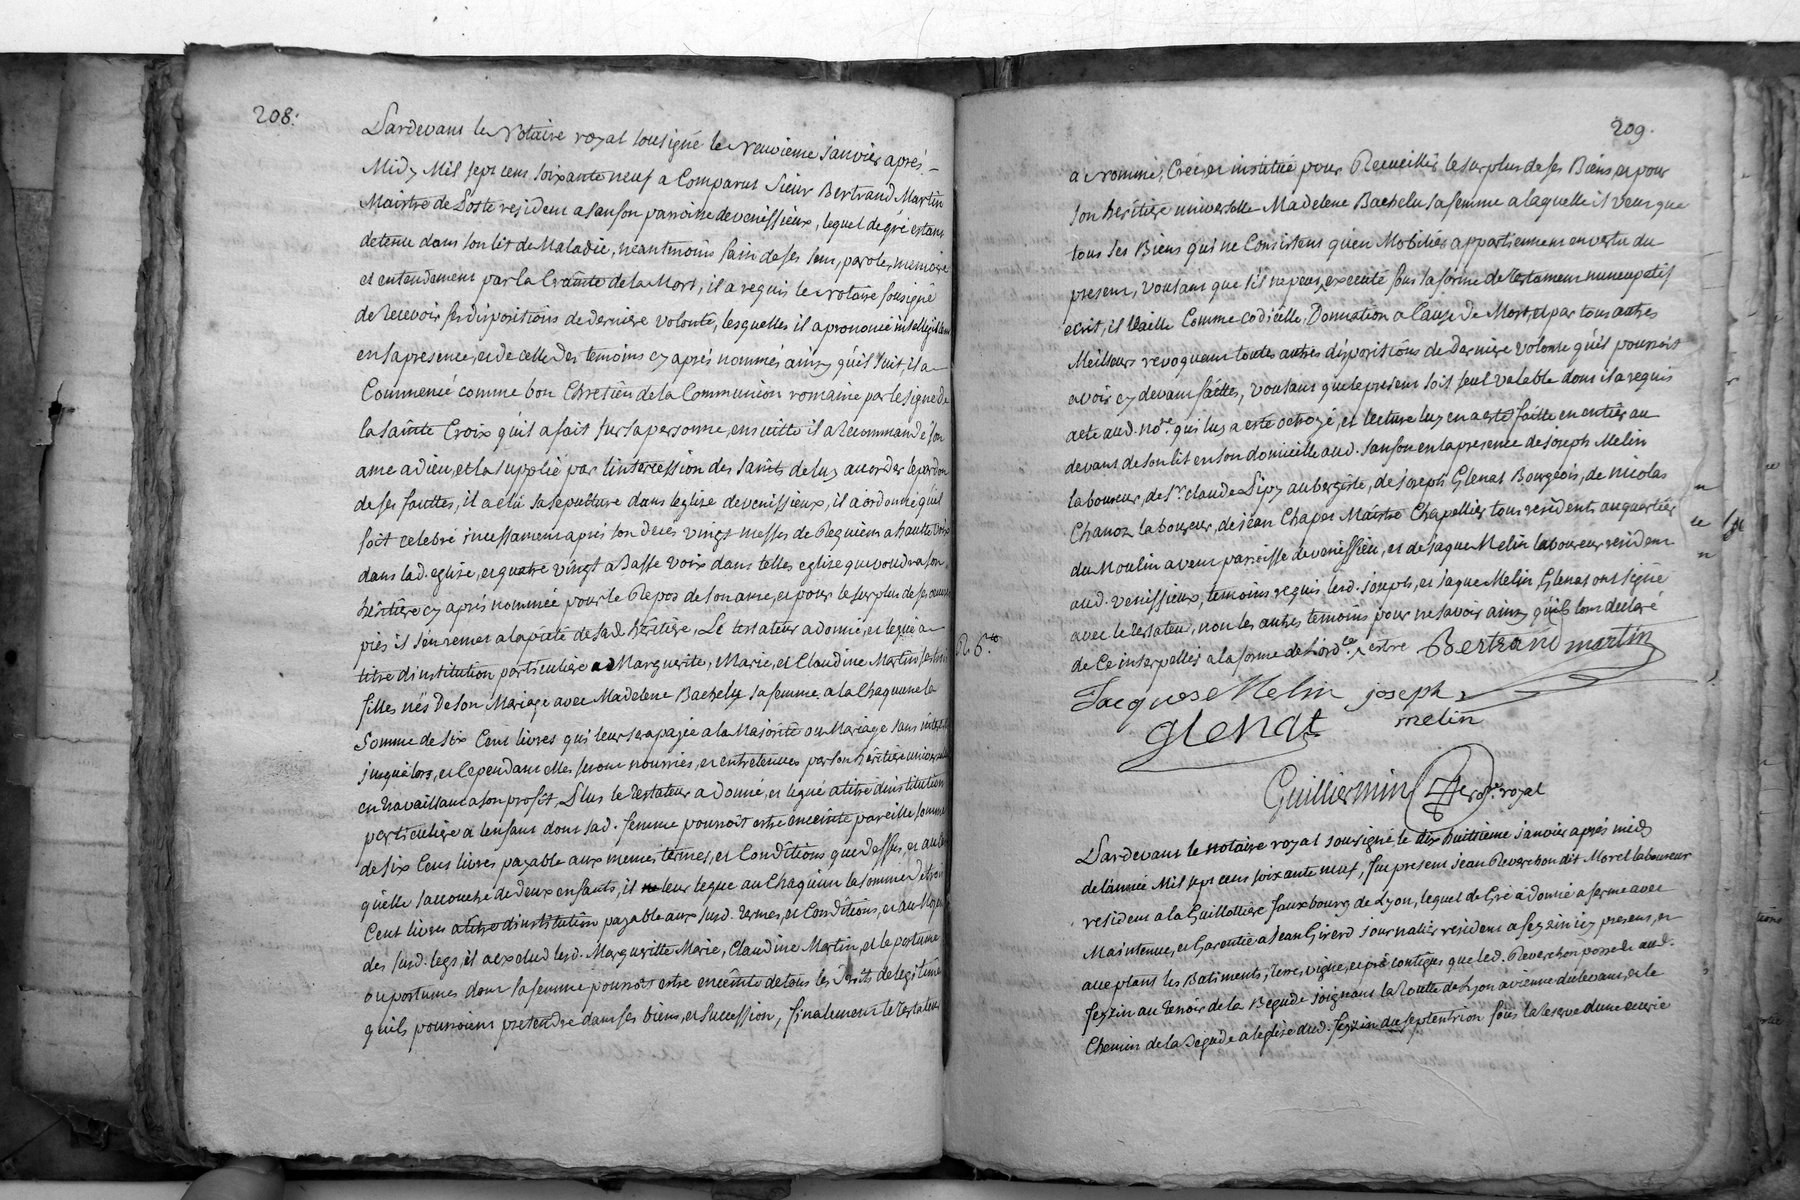 208.
Pardevant le Notaire royal sousigné le neuvieme janvier aprés
Midy Mil sept cens soixante neuf a Comparut Sieur Bertrand Martin
Maistre de Poste resident a Sanfon parroisse de venissieux, lequel de gré estant
detenu dans son lit de Maladie, neantmoins sain de ses sens, parole, memoire
et entendement par la Crainte de la Mort, il a requis le Notaire sousigné
de recevoir ses dispositions de derniere volonté, lesquelles il a prononcé
en sa presence, et de celle des temoins cy aprés nommés ainsy quil suit, il a
Commencé comme bon Chretien de la Communion romaine par le signe de
la sainte Croix quil a fait sur sa personne, ensuitte il a recommandé son
ame a dieu, et la supplié par lintercession des saints de luy accorder le pardon
de ses fauttes, il a elu sa sepulture dans leglise de venissieux, il a ordonné quil
soit celebré incessament aprés son decés vingt messes de Requiem a hautte voix
dans lad. eglise, et quatre vingt a Basse voix dans telles eglise que voudra son
héritiere cy aprés nommée pour le Repos de son ame, et pour le surplus de ses
pies il s'en remet a la pieté de sad. héritiere, Le testateur a donné, et legué a
titre d'institution particuliere a Marguerite, Marie, et Claudine Martin ses trois
filles nés de son Mariage avec Madelene Bachelu sa femme a la Chaqune la
Somme de six Cent livres qui leur sera payée a la Majorité ou Mariage sans interets
jusqualors, et Cependant elles seront nourries, et entretenues par son héritiere universelle
en travaillant a son profit, Plus le testateur a donné, et legué a titre d'institution
particuliere a lenfant dont sad. femme pourroit estre enceinte pareille somme
de six Cent livres payable aux memes termes, et Conditions que dessus, et au cas
quelle saccouche de deux enfants, il leur legue au Chaqu'un la somme de trois
Cent livres a titre d'institution payable aux susd. termes, et Conditions, et au Moyen
des susd. legs, il a exclud lesd. Margueritte Marie, Claudine Martin, et le postume
ou postumes dont sa femme pourroit estre enceinte de tous les droits de legitime
quils pourroient pretendre dans ses biens, et succession, finalement le testateur
209.
a nommé, Créé, et institué pour Recueillir le surplus de ses Biens, et pour
son heritiere universelle Madelene Bachelu sa femme a laquelle il veut que
tous ses Biens qui ne Consistent qu'en Mobilier appartiennent en vertu du
present, voulant que s'il ne peut executé sous la forme de testament nuncupatif
ecrit, il vaille Comme codicille, Donnation a Cause de Mort, et par tous autres
Meilleurs revoquant toutes autres dispositions de derniere volonté quil pourroit
avoir cy devant faittes, voulant que le present soit seul valable dont il a requis
acte aud. nore. qui luy a esté octroyé, et lecture luy en a esté faitte en entier au
devant de son lit en son domicille aud. Sanfon en la presence de joseph Melin
laboureur, de Sr. Claude Lipy aubergiste, de joseph Glenat Bourgeois, de nicolas
Chanoz laboureur, de jean Chaper Maistre Chapellier tous residents au quartier
du Moulin a vent parroisse de venissieu, et de jaque Melin laboureur resident
aud. venissieux, temoins requis lesd. joseph, et jaque Melin, Glenat ont signé
avec le testateur, non les autres temoins pour ne savoir ainsy quils lont declaré
de Ce interpellés a la forme de lordce. estre
Bertrand martin
Jacques Melin joseph
melin
glenat
Guilliermin nore. royal
Pardevant le notaire royal sousigné le dix huitieme janvier aprés midy
de lannée Mil sept cens soixante neuf, fut present jean Reverchon dit Morel laboureur
resident a la Guillottiere fauxbourg de Lyon, lequel de Gré a donné a ferme avec
Maintenue, et Garentie a jean Girerd journalier resident a feyzin icy present, et
acceptant les Batiments, terre, vigne, et pré contigus que led. Reverchon possede aud.
feyzin au terroir de la Begude joignant la Routte de Lyon a vienne du levant, et le
Chemin de la Begude a leglise dud. feyzin du septentrion sous la reserve d'une ecurie